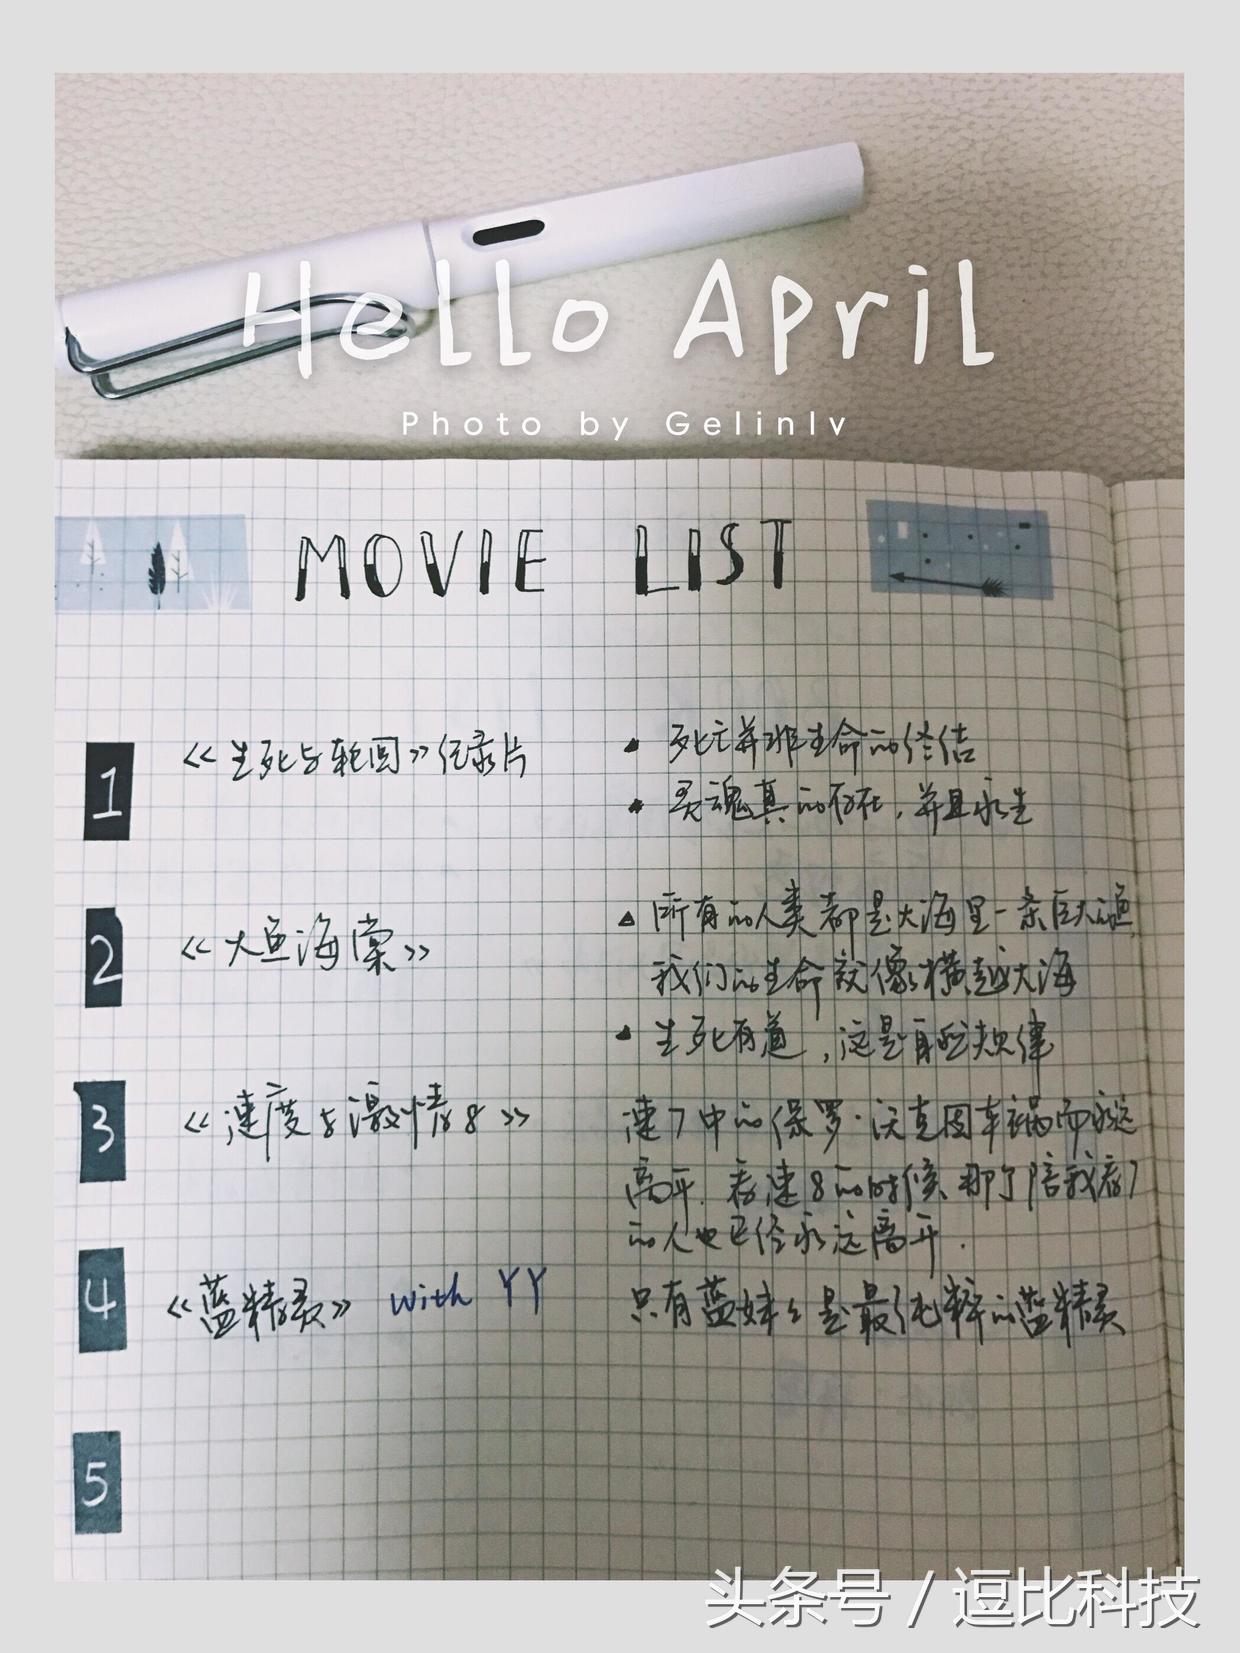 Hello April
Photo by Gelinlv
MOVIE LIST
1
《生死与轮回》纪录片
• 死亡并非生命的终结
• 灵魂真的存在，并且永生
2
《大鱼海棠》
• 所有的人类都是大海里一条巨大的鱼，
我们的生命就像横越大海
• 生死有道，这是自然规律
3
《速度与激情8》
速7中的保罗·沃克因车祸而永远
离开．看速8的时候，那个陪我看7
的人也已经永远离开．
4
《蓝精灵》 with YY
只有蓝妹妹是最纯粹的蓝精灵
5
头条号 / 逗比科技